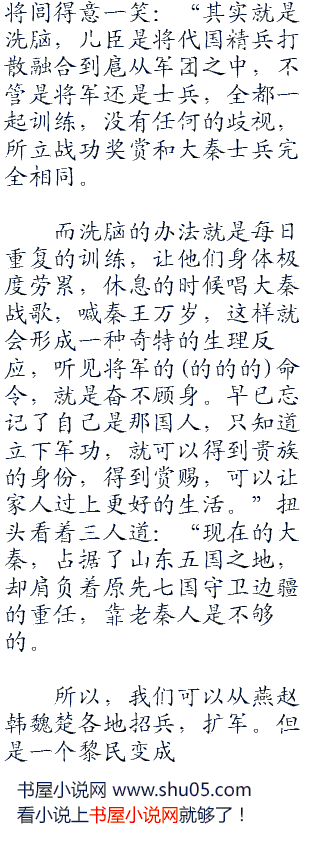 将闾得意一笑：“其实就是
洗脑，儿臣是将代国精兵打
散融合到扈从军团之中，不
管是将军还是士兵，全都一
起训练，没有任何的歧视，
所立战功奖赏和大秦士兵完
全相同。
而洗脑的办法就是每日
重复的训练，让他们身体极
度劳累，休息的时候唱大秦
战歌，喊秦王万岁，这样就
会形成一种奇特的生理反
应，听见将军的(的的的)命
令，就是奋不顾身。早已忘
记了自己是那国人，只知道
立下军功，就可以得到贵族
的身份，得到赏赐，可以让
家人过上更好的生活。”扭
头看着三人道：“现在的大
秦，占据了山东五国之地，
却肩负着原先七国守卫边疆
的重任，靠老秦人是不够
的。
所以，我们可以从燕赵
韩魏楚各地招兵，扩军。但
是一个黎民变成
书屋小说网 www.shu05.com
看小说上书屋小说网就够了！